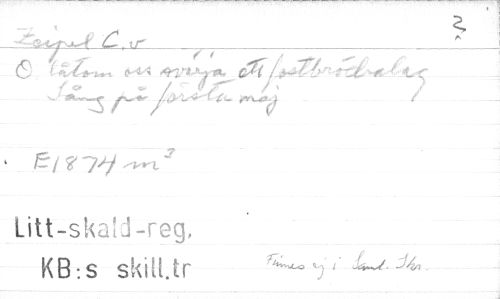 ?
Zeipel C.v
O låtom oss svärja ett fostbrödralag
Sång på första maj
E1874 m³
Litt-skald-reg.
KB:s skill.tr
Finnes ej i Saml. Skr.